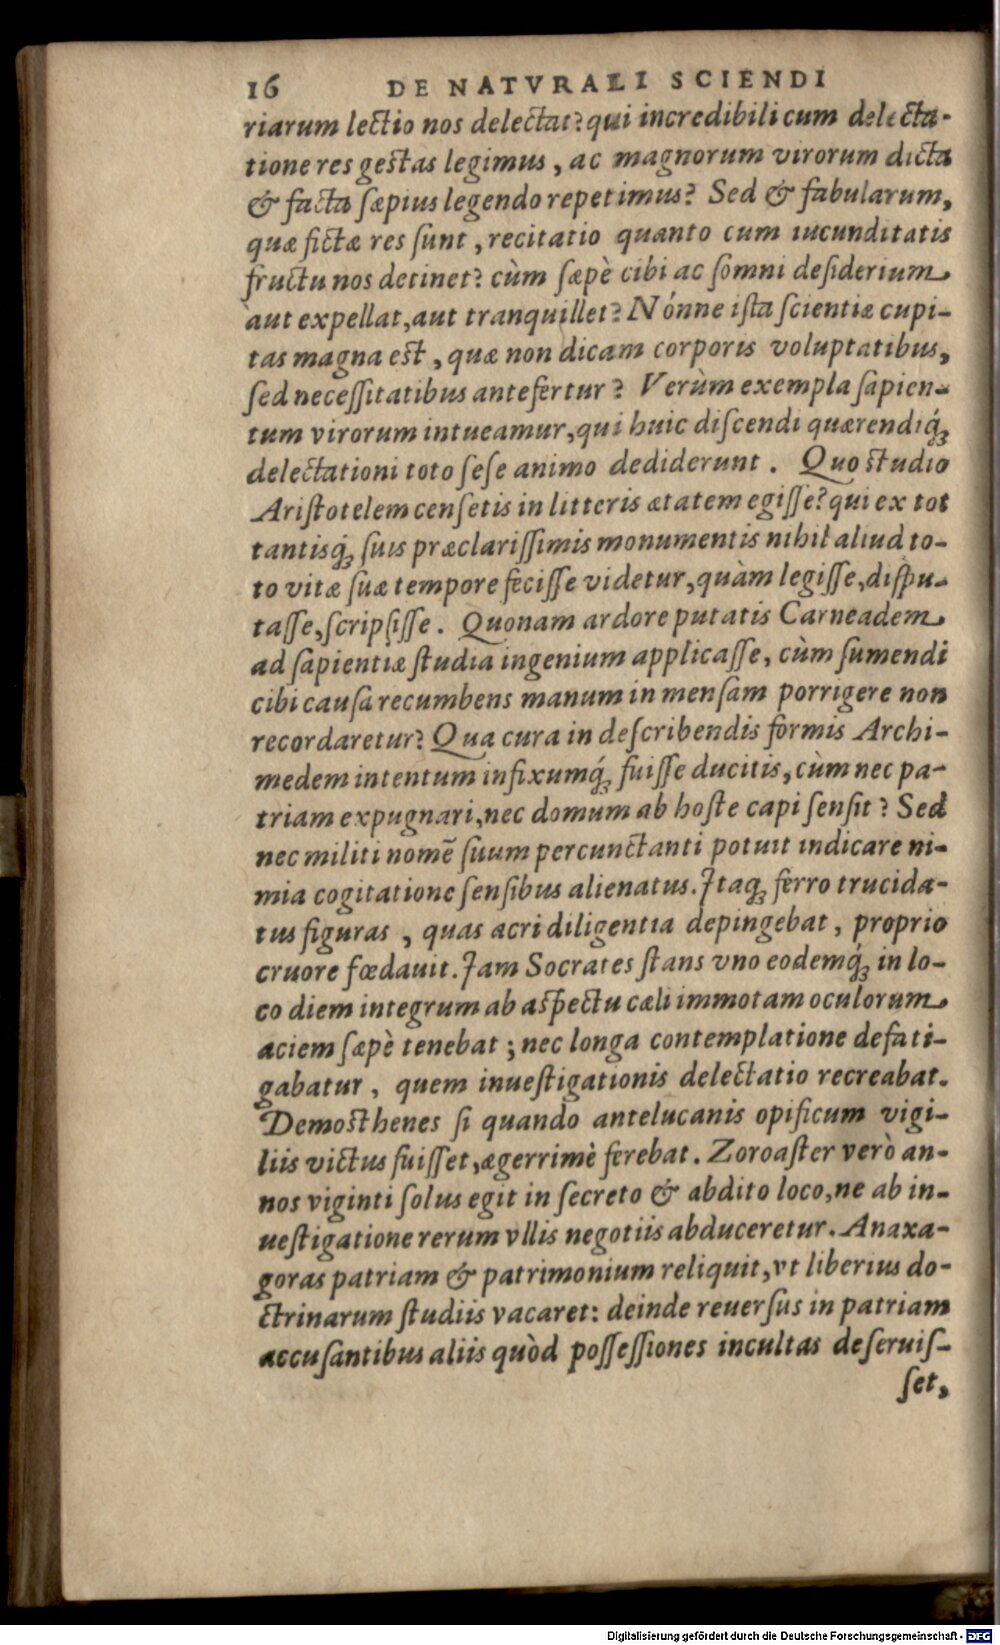 16 DE NATVRALI SCIENDI
riarum lectio nos delectat? qui incredibili cum delecta-
tione res gestas legimus, ac magnorum virorum dicta
& facta sæpius legendo repetimus? Sed & fabularum,
quæ fictæ res sunt, recitatio quanto cum iucunditatis
fructu nos detinet? cùm sæpè cibi ac somni desiderium
aut expellat, aut tranquillet? Nónne ista scientiæ cupi-
tas magna est, quæ non dicam corporis voluptatibus,
sed necessitatibus antefertur? Verùm exempla sapien-
tum virorum intueamur, qui huic discendi quærendiq́;
delectationi toto sese animo dediderunt. Quo studio
Aristotelem censetis in litteris ætatem egisse? qui ex tot
tantisq́; suis præclarissimis monumentis nihil aliud to-
to vitæ suæ tempore fecisse videtur, quàm legisse, dispu-
tasse, scripsisse. Quonam ardore putatis Carneadem
ad sapientiæ studia ingenium applicasse, cùm sumendi
cibi causa recumbens manum in mensam porrigere non
recordaretur? Qua cura in describendis formis Archi-
medem intentum infixumq́; fuisse ducitis, cùm nec pa-
triam expugnari, nec domum ab hoste capi sensit? Sed
nec militi nomē suum percunctanti potuit indicare ni-
mia cogitatione sensibus alienatus. Itaq; ferro trucida-
tus figuras, quas acri diligentia depingebat, proprio
cruore fœdauit. Iam Socrates stans vno eodemq́; in lo-
co diem integrum ab aspectu cæli immotam oculorum
aciem sæpè tenebat; nec longa contemplatione defati-
gabatur, quem inuestigationis delectatio recreabat.
Demosthenes si quando antelucanis opificum vigi-
liis victus fuisset, ægerrimè ferebat. Zoroaster verò an-
nos viginti solus egit in secreto & abdito loco, ne ab in-
uestigatione rerum vllis negotiis abduceretur. Anaxa-
goras patriam & patrimonium reliquit, vt liberius do-
ctrinarum studiis vacaret: deinde reuersus in patriam
accusantibus aliis quòd possessiones incultas deseruis-
set,
Digitalisierung gefördert durch die Deutsche Forschungsgemeinschaft - DFG